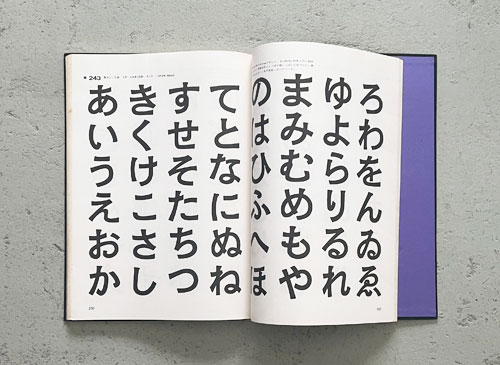 243
あいうえおか
きくけこさし
すせそたちつ
てとなにぬね
のはひふへほ
まみむめもや
ゆよらりるれ
ろわをんゐゑ